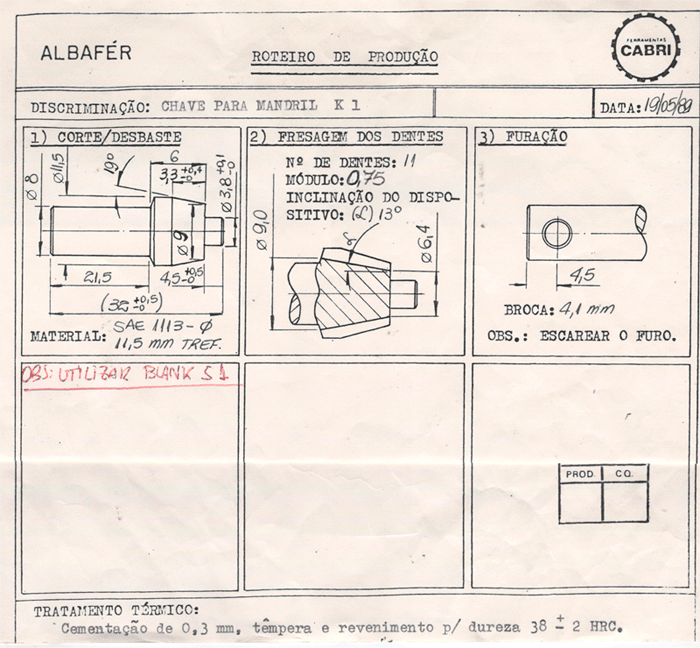 ALBAFÉR
ROTEIRO DE PRODUÇÃO
FERRAMENTAS
CABRI
DISCRIMINAÇÃO: CHAVE PARA MANDRIL K 1
DATA: 19/05/89
1) CORTE/DESBASTE
6
3,3 +0,4 -0
19º
Ø 11,5
Ø 8
Ø 3,8 +0,1 -0
Ø 9
21,5
4,5 +0,5 -0
(32 +0,5 -0)
MATERIAL: SAE 1113 - Ø
11,5 mm TREF.
2) FRESAGEM DOS DENTES
Nº DE DENTES: 11
MÓDULO: 0,75
INCLINAÇÃO DO DISPO-
SITIVO: (α) 13º
Ø 9,0
α
Ø 6,4
3) FURAÇÃO
4,5
BROCA: 4,1 mm
OBS.: ESCAREAR O FURO.
OBS: UTILIZAR BLANK S 1
PROD. C.Q.
TRATAMENTO TÉRMICO:
Cementação de 0,3 mm, têmpera e revenimento p/ dureza 38 ± 2 HRC.